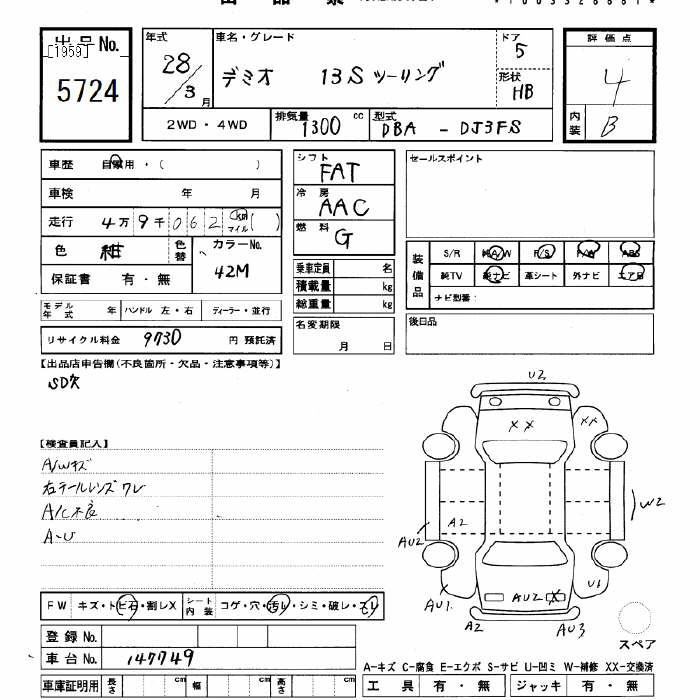 出品票
*1003328881*
出品No.
[1959]
5724
年式
28/3月
車名・グレード
デミオ 13Sツーリング
ドア
5
形状
HB
評価点
4
内装
B
2WD・4WD
排気量
1300 cc
型式
DBA - DJ3FS
車歴 自家用・( )
車検 年 月
走行 4万9千062 km マイル ( )
色 紺
色替
カラーNo.
42M
保証書 有・無
モデル年式 年 ハンドル 左・右 ディーラー・並行
リサイクル料金 9730 円 預託済
シフト
FAT
冷房
AAC
燃料
G
乗車定員 名
積載量 kg
総重量 kg
名変期限
月 日
セールスポイント
装備品
S/R 純A/W P/S P/W ABS
純TV 純ナビ 革シート 外ナビ エアB
ナビ型番:
後日品
【出品店申告欄(不良箇所・欠品・注意事項等)】
SD欠
【検査員記入】
A/Wキズ
右テールレンズワレ
A/C不良
A~U
U2
XX
XX
W2
A2
AU2
AU1
AU2 X
U1
A2
AU3
スペア
FW キズ・トビ石・割レX シート内装 コゲ・穴・汚レ・シミ・破レ・スレ
登録No.
車台No. 147749
車庫証明用 長さ cm 幅 cm 高さ cm
A-キズ C-腐食 E-エクボ S-サビ U-凹ミ W-補修 XX-交換済
工具 有・無 ジャッキ 有・無